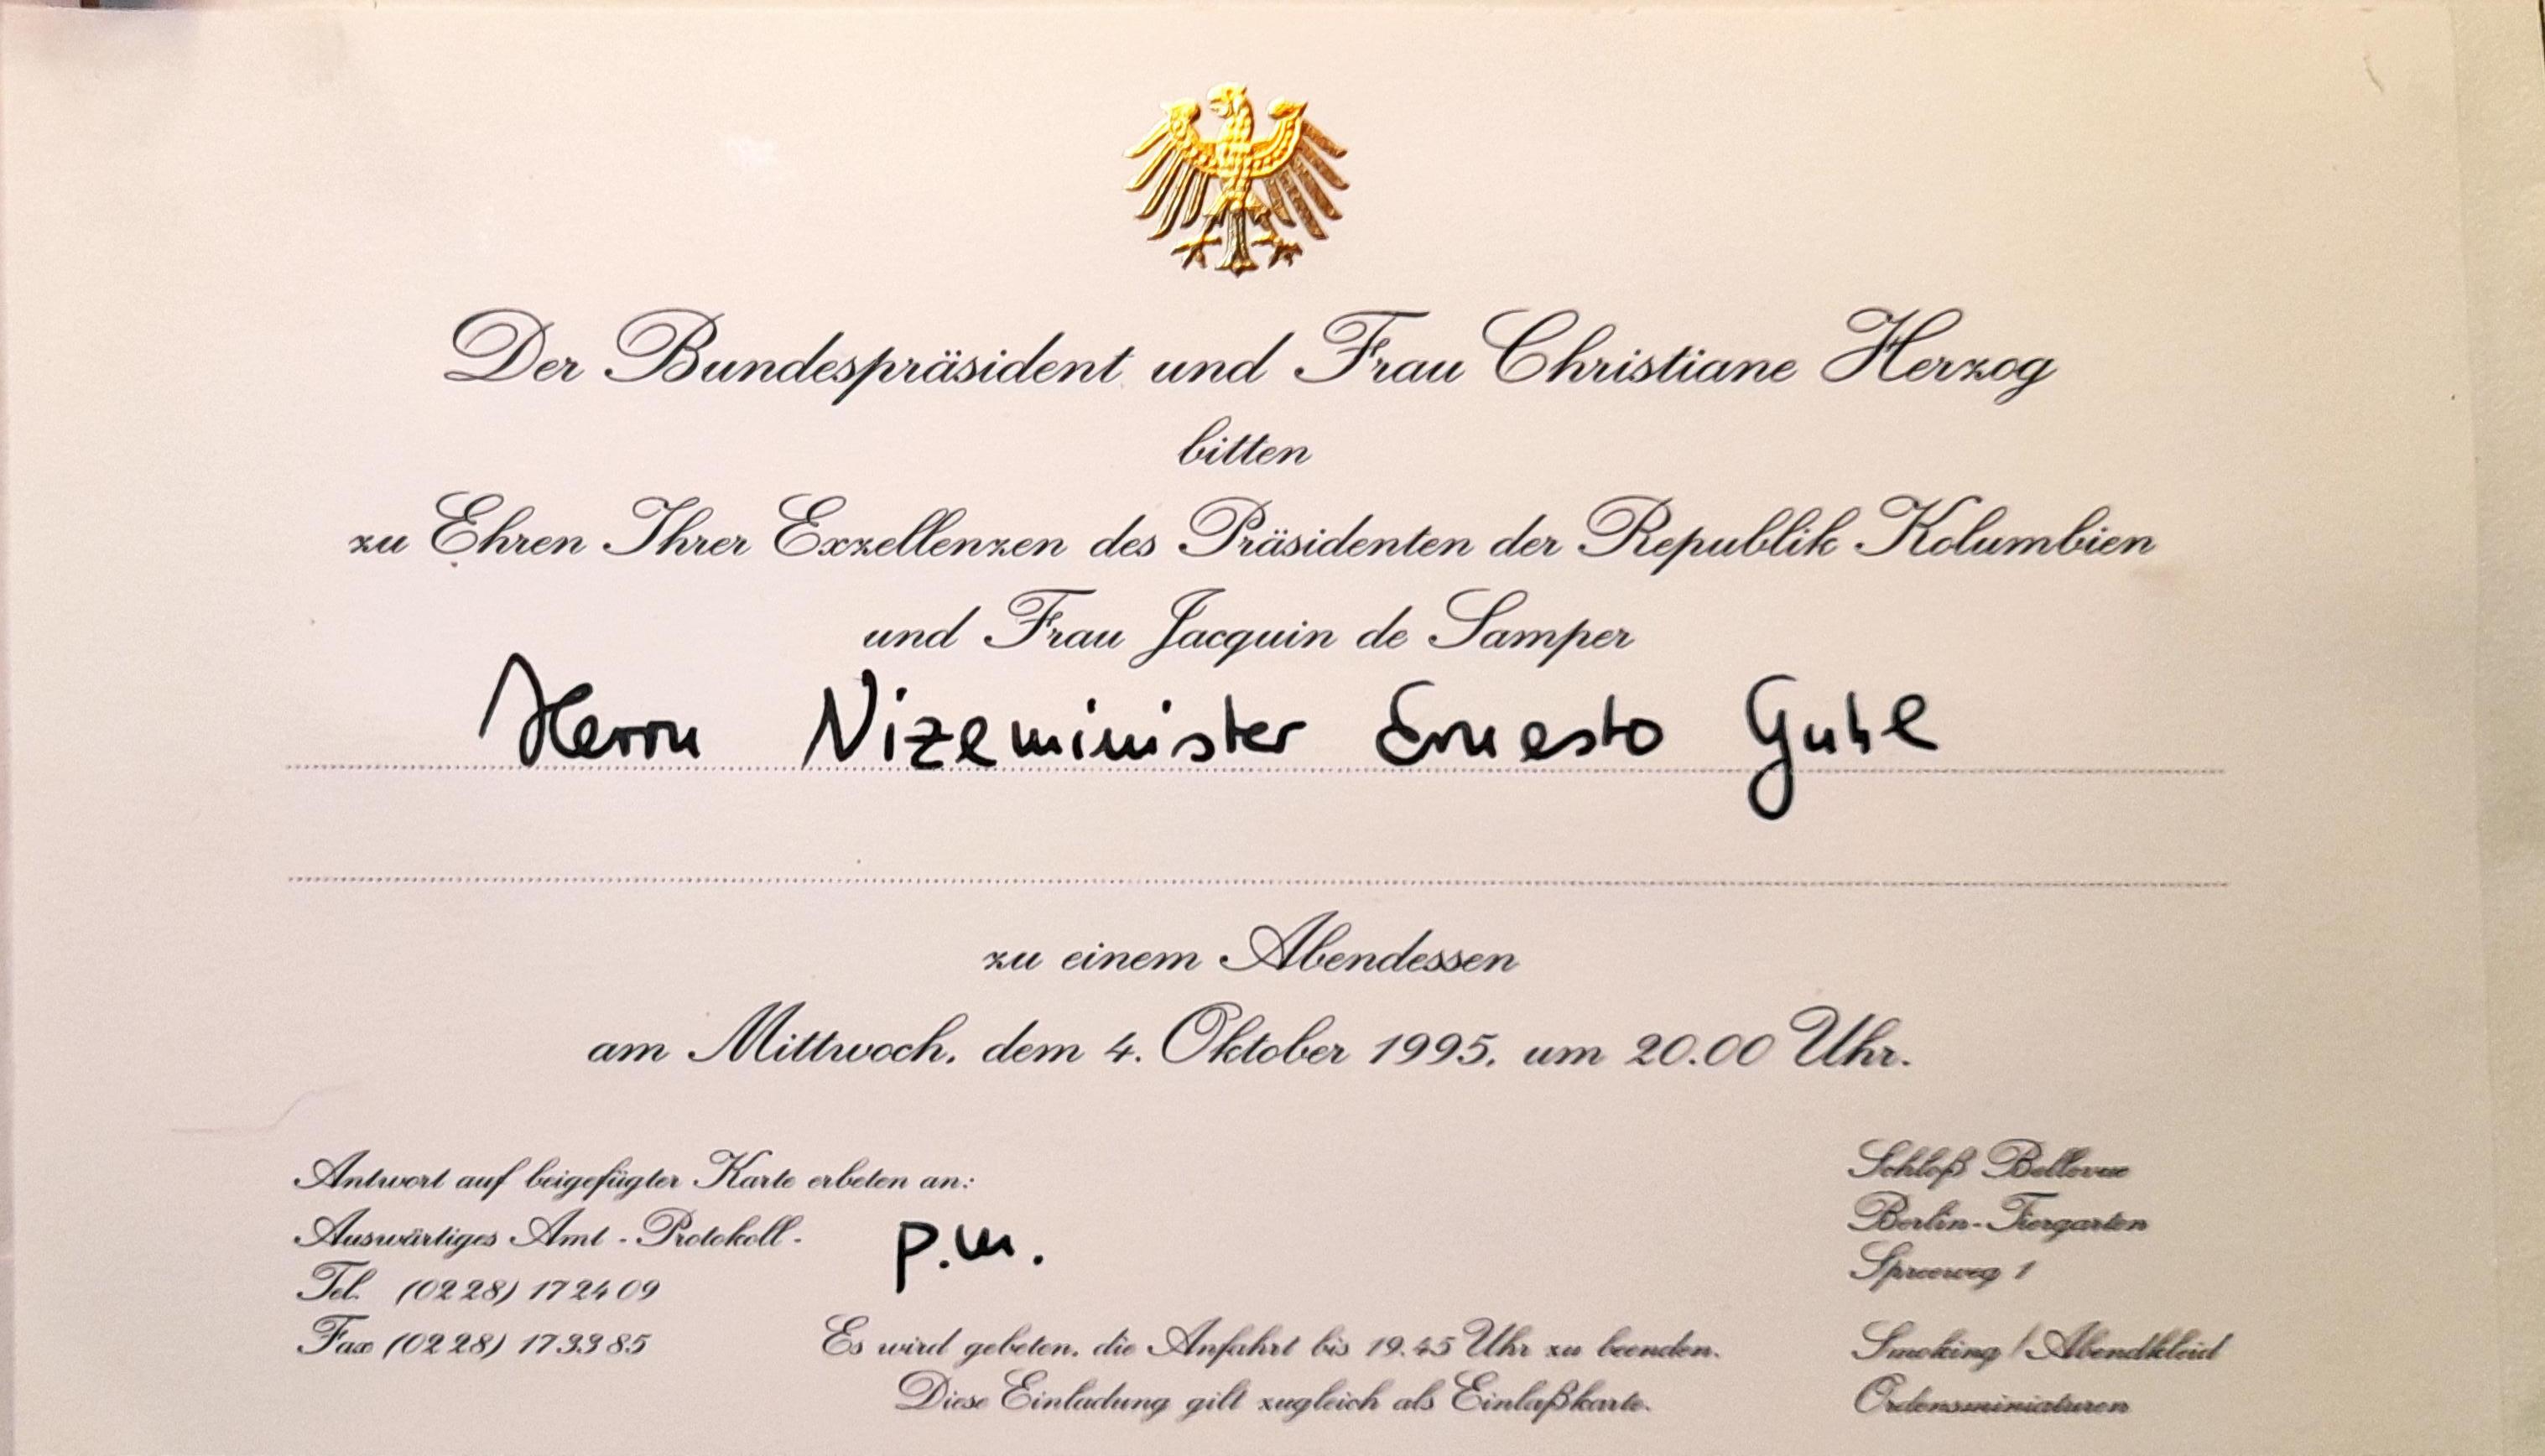 Der Bundespräsident und Frau Christiane Herzog
bitten
zu Ehren Ihrer Exzellenzen des Präsidenten der Republik Kolumbien
und Frau Jacquin de Samper
Herrn Vizeminister Ernesto Guhl
zu einem Abendessen
am Mittwoch, dem 4. Oktober 1995, um 20.00 Uhr.
Antwort auf beigefügter Karte erbeten an:
Auswärtiges Amt - Protokoll -
Tel. (0228) 172409
Fax (0228) 173385
p.m.
Es wird gebeten, die Anfahrt bis 19.45 Uhr zu beenden.
Diese Einladung gilt zugleich als Einlaßkarte.
Schloß Bellevue
Berlin-Tiergarten
Spreeweg 1
Smoking / Abendkleid
Ordensminiaturen